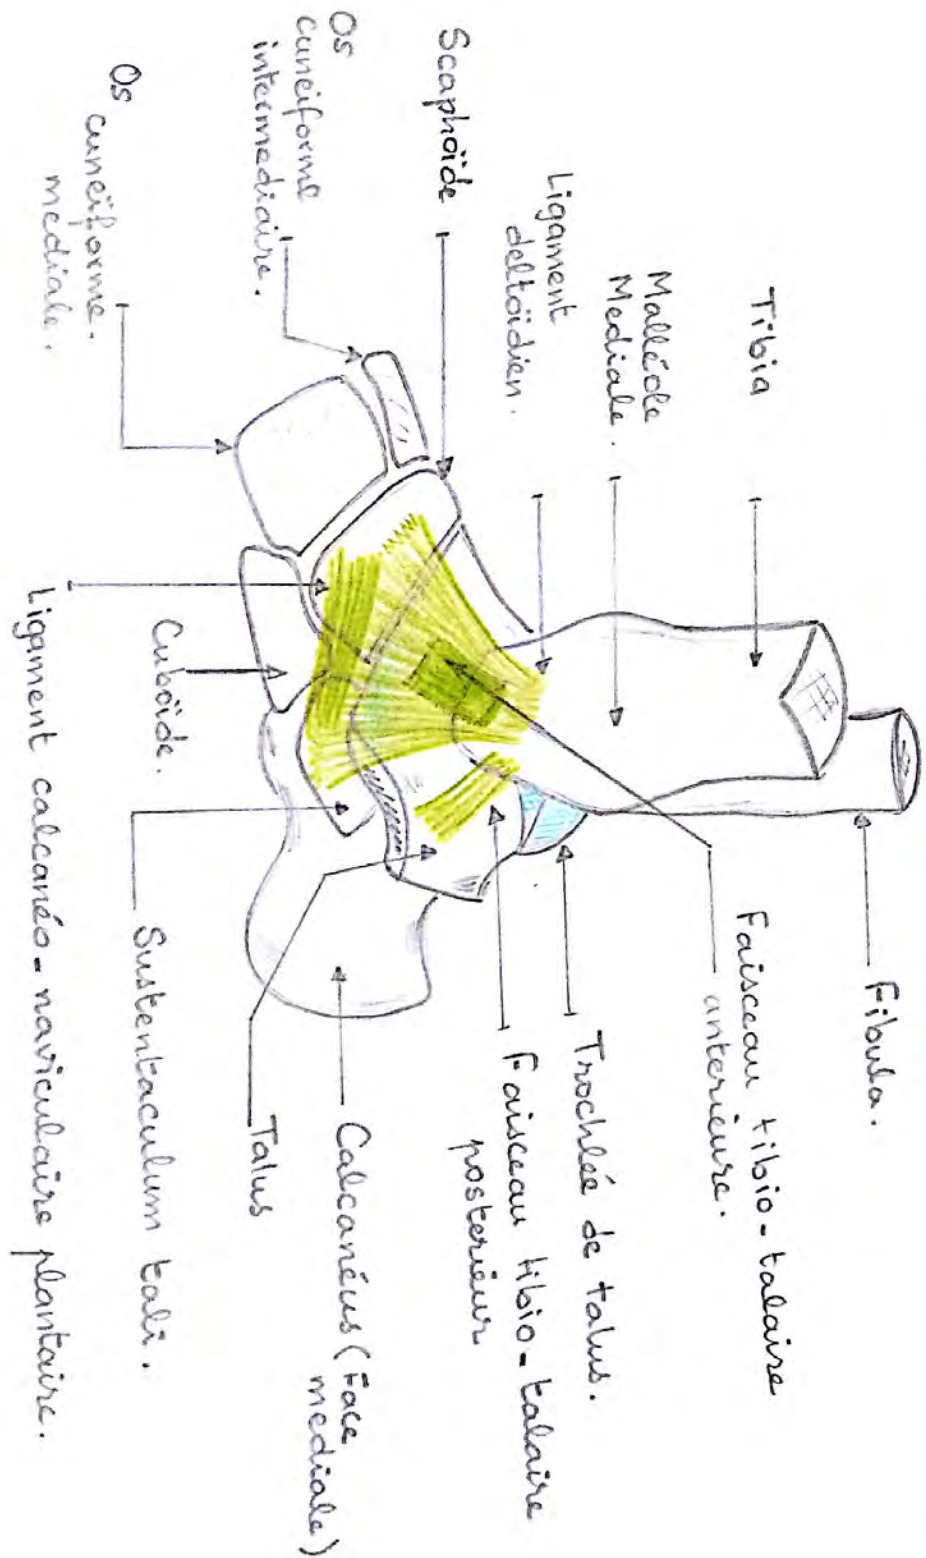 Tibia
Malléole
Mediale.
Ligament
deltoïdien.
Scaphoïde
Os
cuneiforme
intermediaire.
Os
cuneïforme.
mediale.
Fibula.
Faisceau tibio-talaire
anterieure.
Trochlée de talus.
Faisceau tibio-talaire
posterieur
Calcanéus (Face
mediale)
Talus
Sustentaculum tali.
Cuboïde.
Ligament calcanéo-naviculaire plantaire.